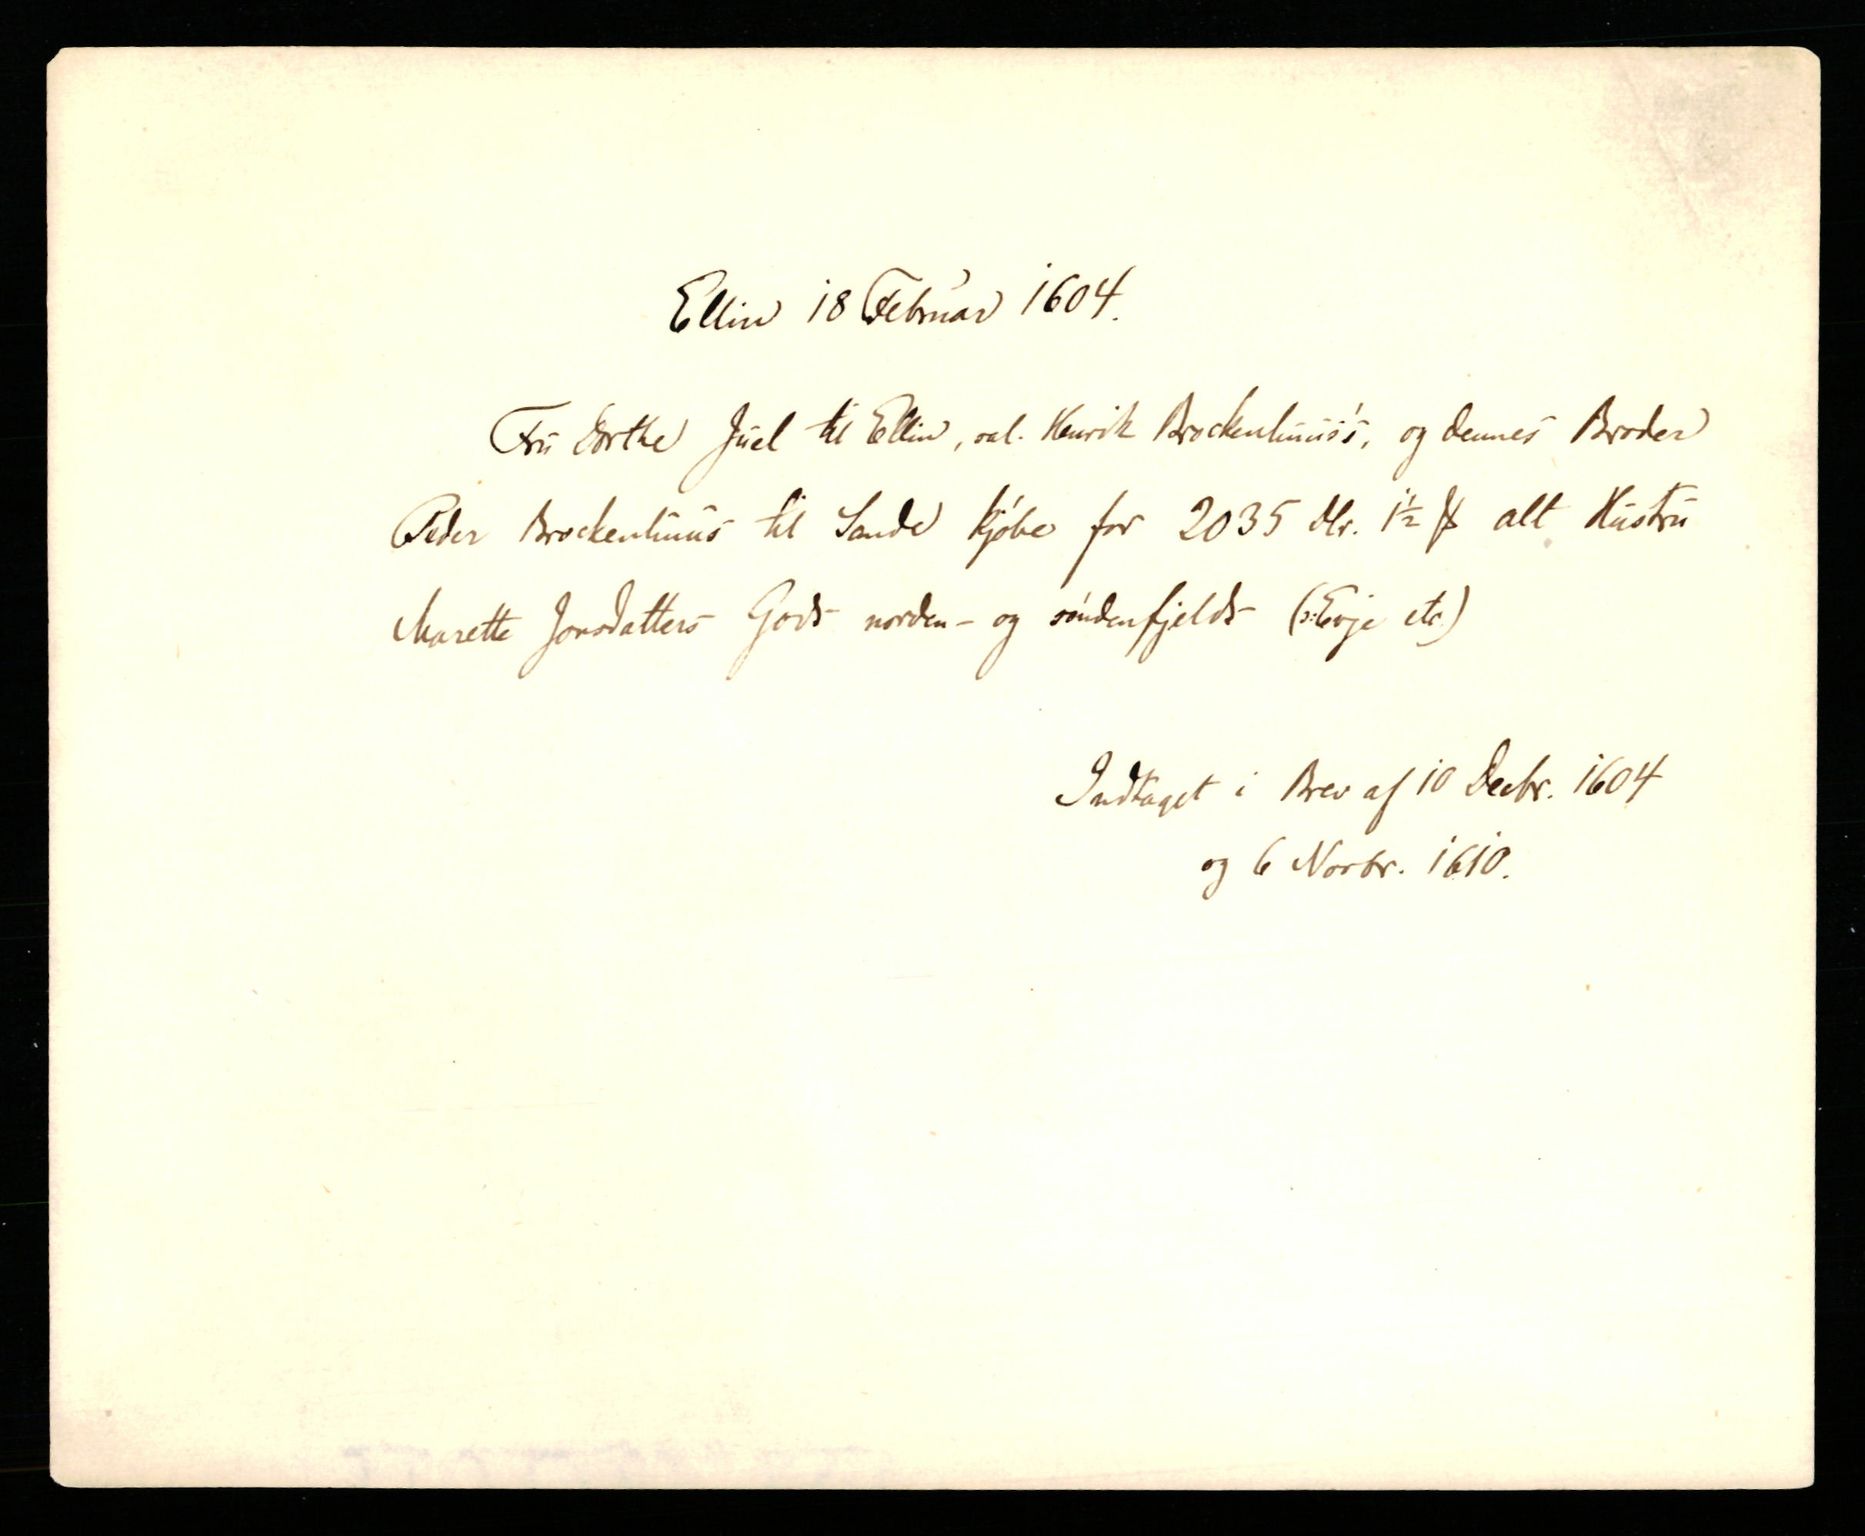 Ellin 18 Februar 1604.
Fru Dorthe Juel til Ellin, sal. Henrik Brockenhuus's, og dennes Broder
Peder Brockenhuus til Sande kjøbe for 2035 Dlr. 1½ ß alt Hustru
Marette Jonsdatters Gods norden- og søndenfjelds (ɔ: Evje etc)
Indtaget i Brev af 10 Decbr. 1604
og 6 Novbr. 1610.